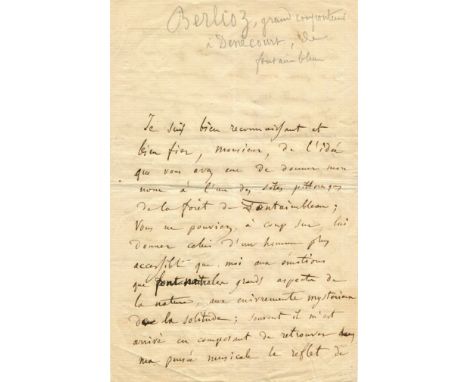 Berlioz, grand compositeur
à Denecourt, de
fontainbleau
Je suis bien reconnaissant et
bien fier, monsieur, de l'idée
que vous avez eue de donner mon
nom à l'un des sites pittoresques
de la forêt de Fontainebleau;
Vous ne pouviez, à coup sur, lui
donner celui d'un homme plus
accessible que moi aux émotions
que font naître les grands aspects de
la nature, aux enivrements mystérieux
de la solitude; souvent il m'est
arrivé en composant de retrouver dans
ma pensée musicale le reflet de